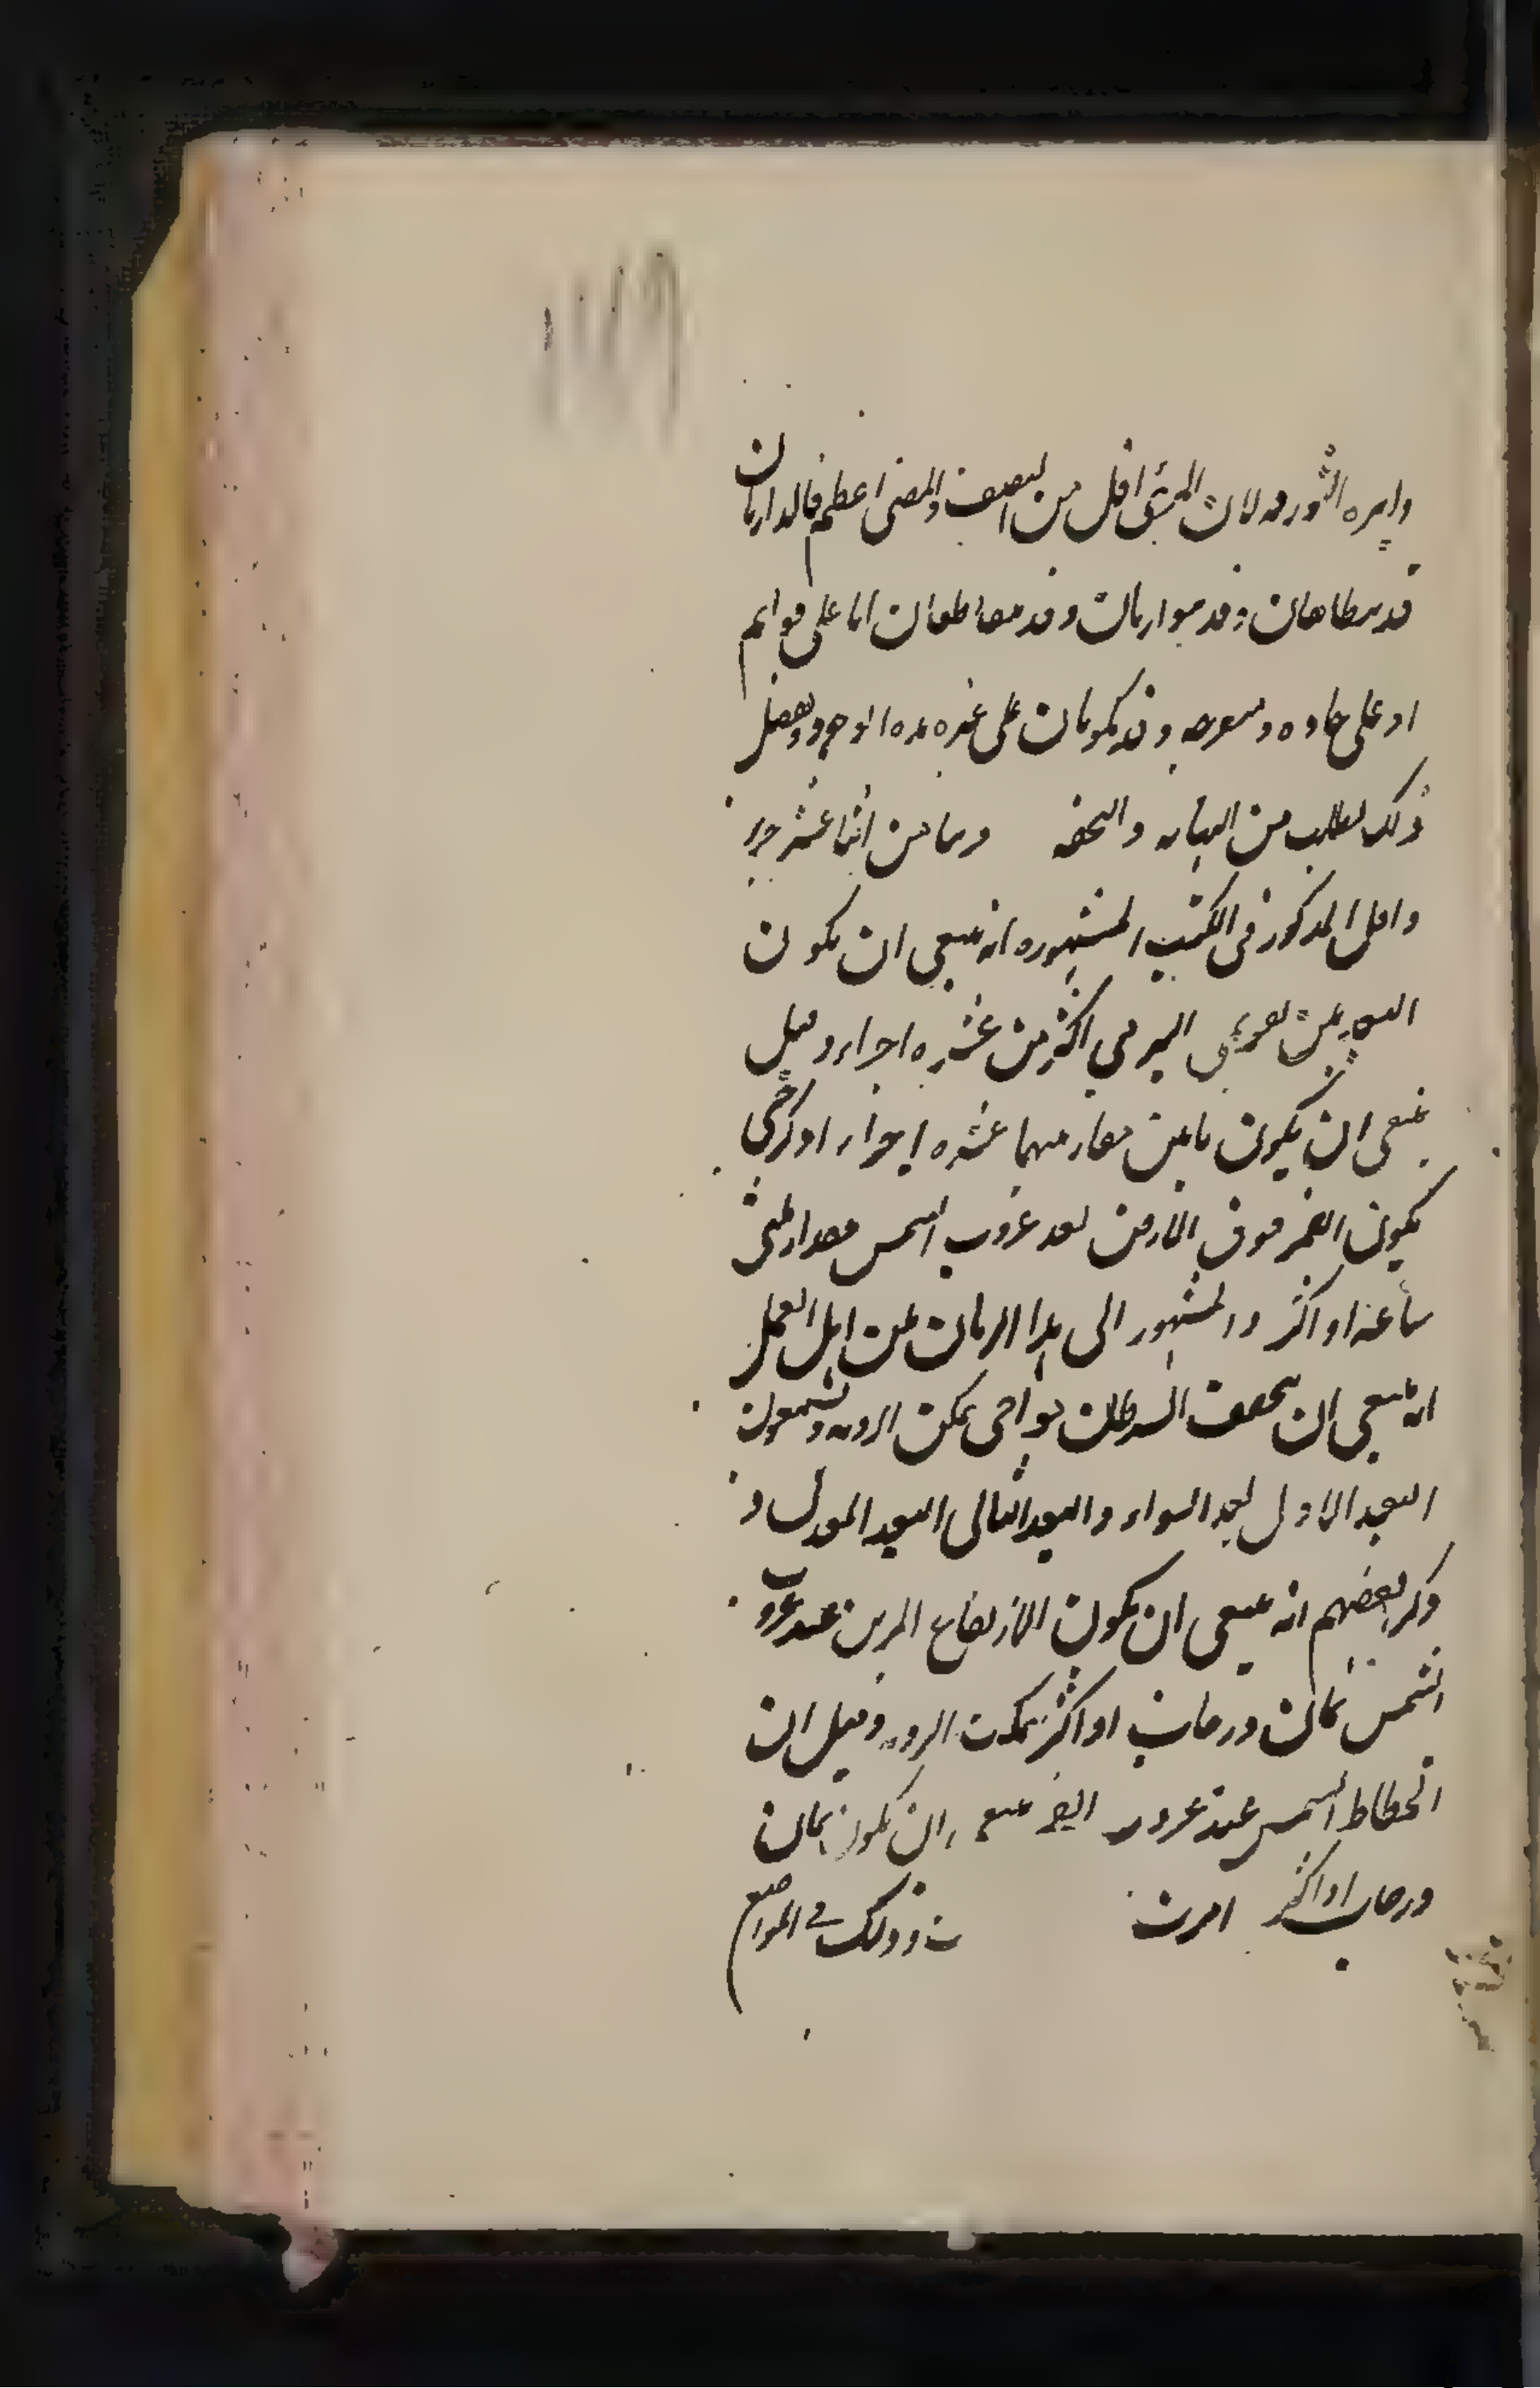 دايره الثور ... لان المرئي اقل من النصف والمضي اعظم فالدايرتان
قد سطابقان وقد سواريان وقد سقاطعان اما على قوايم
او على حاده ومنفرجه وقد يكونان على غير هده الوجوه وتفصيل
ذلك يطلب من النهايه والتحفه ... اثنا عشر جزء
واقل المذكور في الكتب المشهوره انه ينبغي ان يكون
البعد بين تقويمي النيرين اكثر من عشره اجزاء وقيل
ينبغي ان يكون ما بين مغاربيهما عشره اجزاء او اكثر حتى
يكون القمر فوق الارض بعد غروب الشمس مقدار ثلثي
ساعه او اكثر والمشهور الى هذا الزمان بين اهل العمل
انه ينبغي ان يتحقق الشرطان حتى يمكن الرويه ويسمون
البعد الاول بعد السواء والبعد الثاني البعد المعدل و
ذكر بعضهم انه ينبغي ان يكون الارتفاع المرئي عند غروب
الشمس ثمان درجات او اكثر يمكن الرويه وقيل ان
انحطاط الشمس عند غروب القمر ينبغي ان يكون ثمان
درجات او اكثر ... وذلك في المواضع